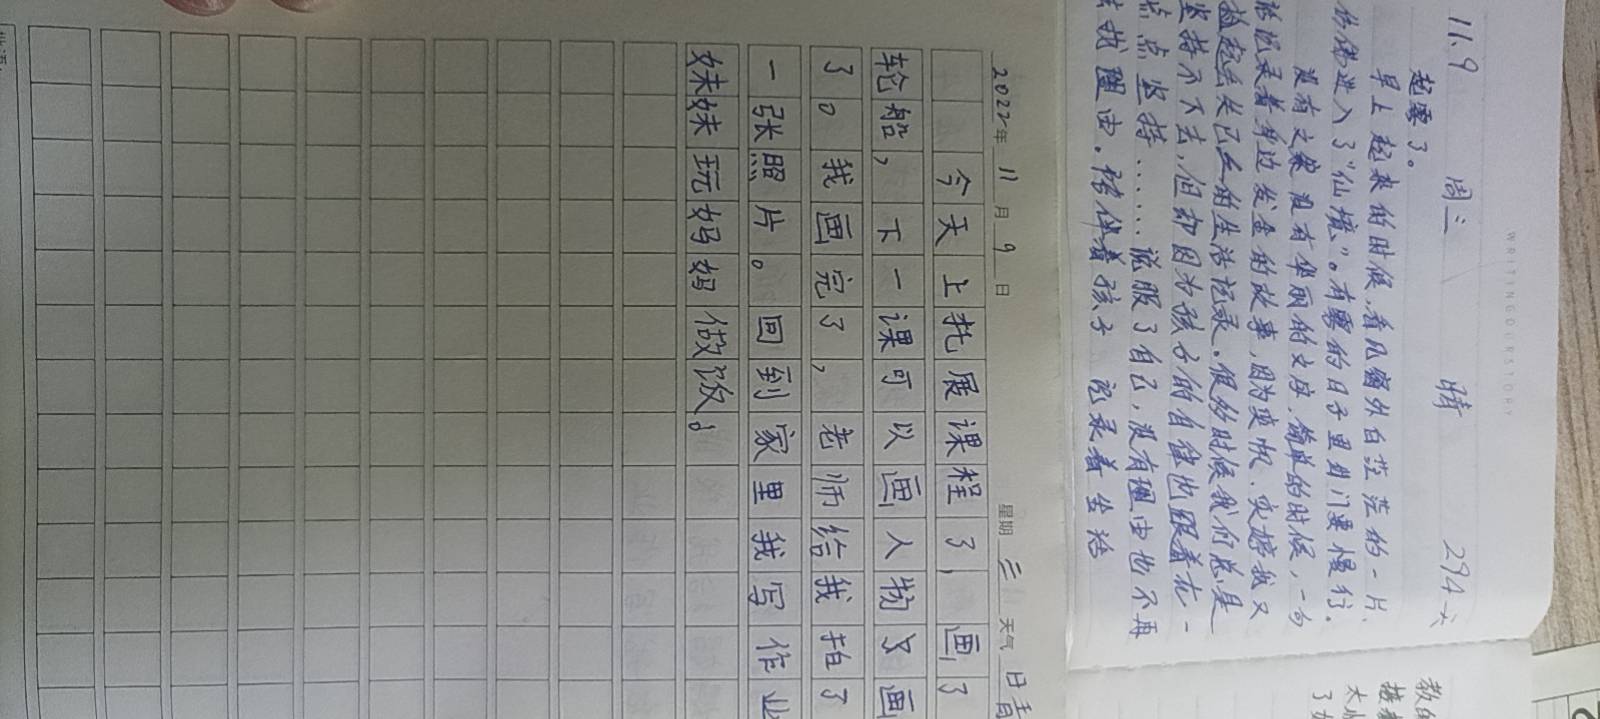 WRITINGOURSTORY
11.9 周三 晴 294天
起雾了。
早上起来的时候,看见窗外白茫茫的一片,
仿佛进入了“仙境”。有雾的日子里出门要慢行。
没有文案没有华丽的文字,简单的时候,一句
话记录着身边发生的故事,因为变帆、实婷我又
捡起丢失已久的生活记录。很多时候我们总是
坚持不下去,但却因为孩子的自律也跟着在一
点点坚持......说服了自己,没有理由也不再
去找理由。陪伴着孩子 记录着生活
2022年 11月 9日 星期三 天气 晴
今天上托展课程了,画了
轮船,下一课可以画人物又画
了。我画完了,老师给我拍了
一张照片。回到家里我写作业
妹妹玩妈妈做饭。